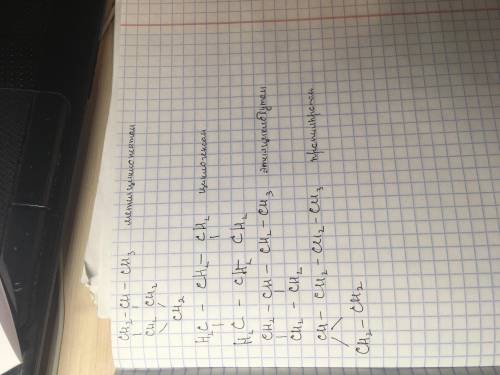 CH₂ - CH - CH₃ метилциклопентан
CH₂ CH₂
CH₂
H₂C - CH₂ - CH₂ циклогексан
H₂C - CH₂ - CH₂
CH₂ - CH - CH₂ - CH₃ этилциклобутан
CH₂ - CH₂
CH - CH₂ - CH₂ - CH₃
CH₂ - CH₂